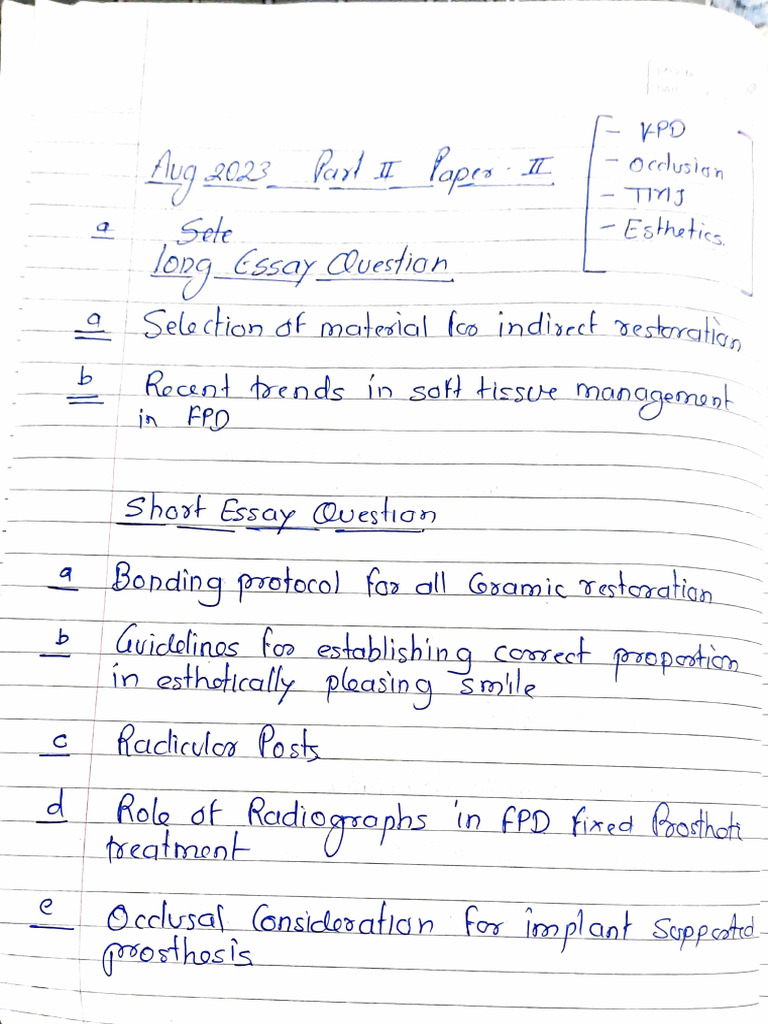 Aug 2023 Part II Paper-II
- FPD
- Occlusion
- TMJ
- Esthetics.
a Sele
long Essay Question
a Selection of material for indirect restoration
b Recent trends in soft tissue management
in FPD
Short Essay Question
a Bonding protocol for all Ceramic restoration
b Guidelines for establishing correct proportion
in esthetically pleasing smile
c Radicular Posts
d Role of Radiographs in FPD fixed Prostheti
treatment
e Occlusal Consideration for implant Supported
prosthesis